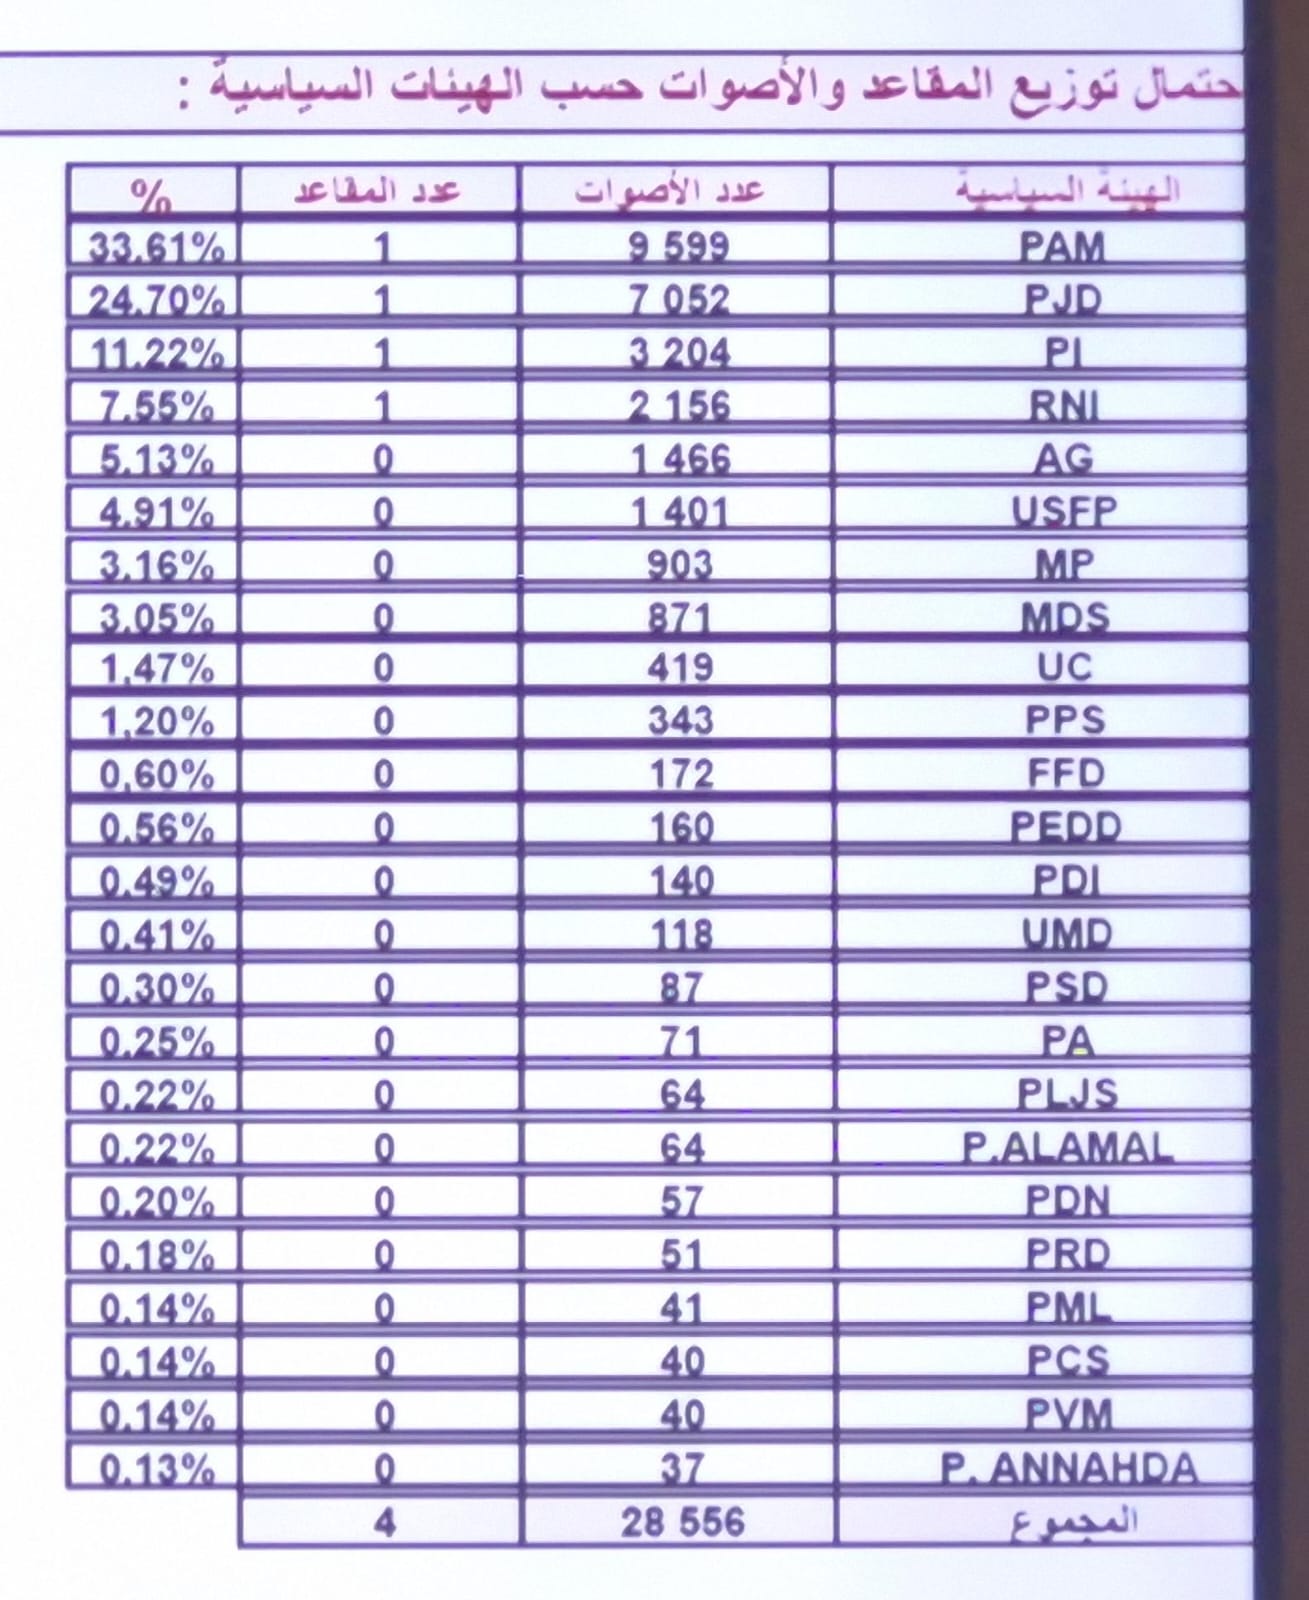 حتمال توزيع المقاعد والأصوات حسب الهيئات السياسية :
الهيئة السياسية عدد الأصوات عدد المقاعد %
PAM 9 599 1 33.61%
PJD 7 052 1 24.70%
PI 3 204 1 11.22%
RNI 2 156 1 7.55%
AG 1 466 0 5.13%
USFP 1 401 0 4.91%
MP 903 0 3.16%
MDS 871 0 3.05%
UC 419 0 1,47%
PPS 343 0 1,20%
FFD 172 0 0,60%
PEDD 160 0 0.56%
PDI 140 0 0.49%
UMD 118 0 0.41%
PSD 87 0 0.30%
PA 71 0 0.25%
PLJS 64 0 0.22%
P.ALAMAL 64 0 0.22%
PDN 57 0 0.20%
PRD 51 0 0.18%
PML 41 0 0.14%
PCS 40 0 0.14%
PVM 40 0 0.14%
P. ANNAHDA 37 0 0.13%
المجموع 28 556 4